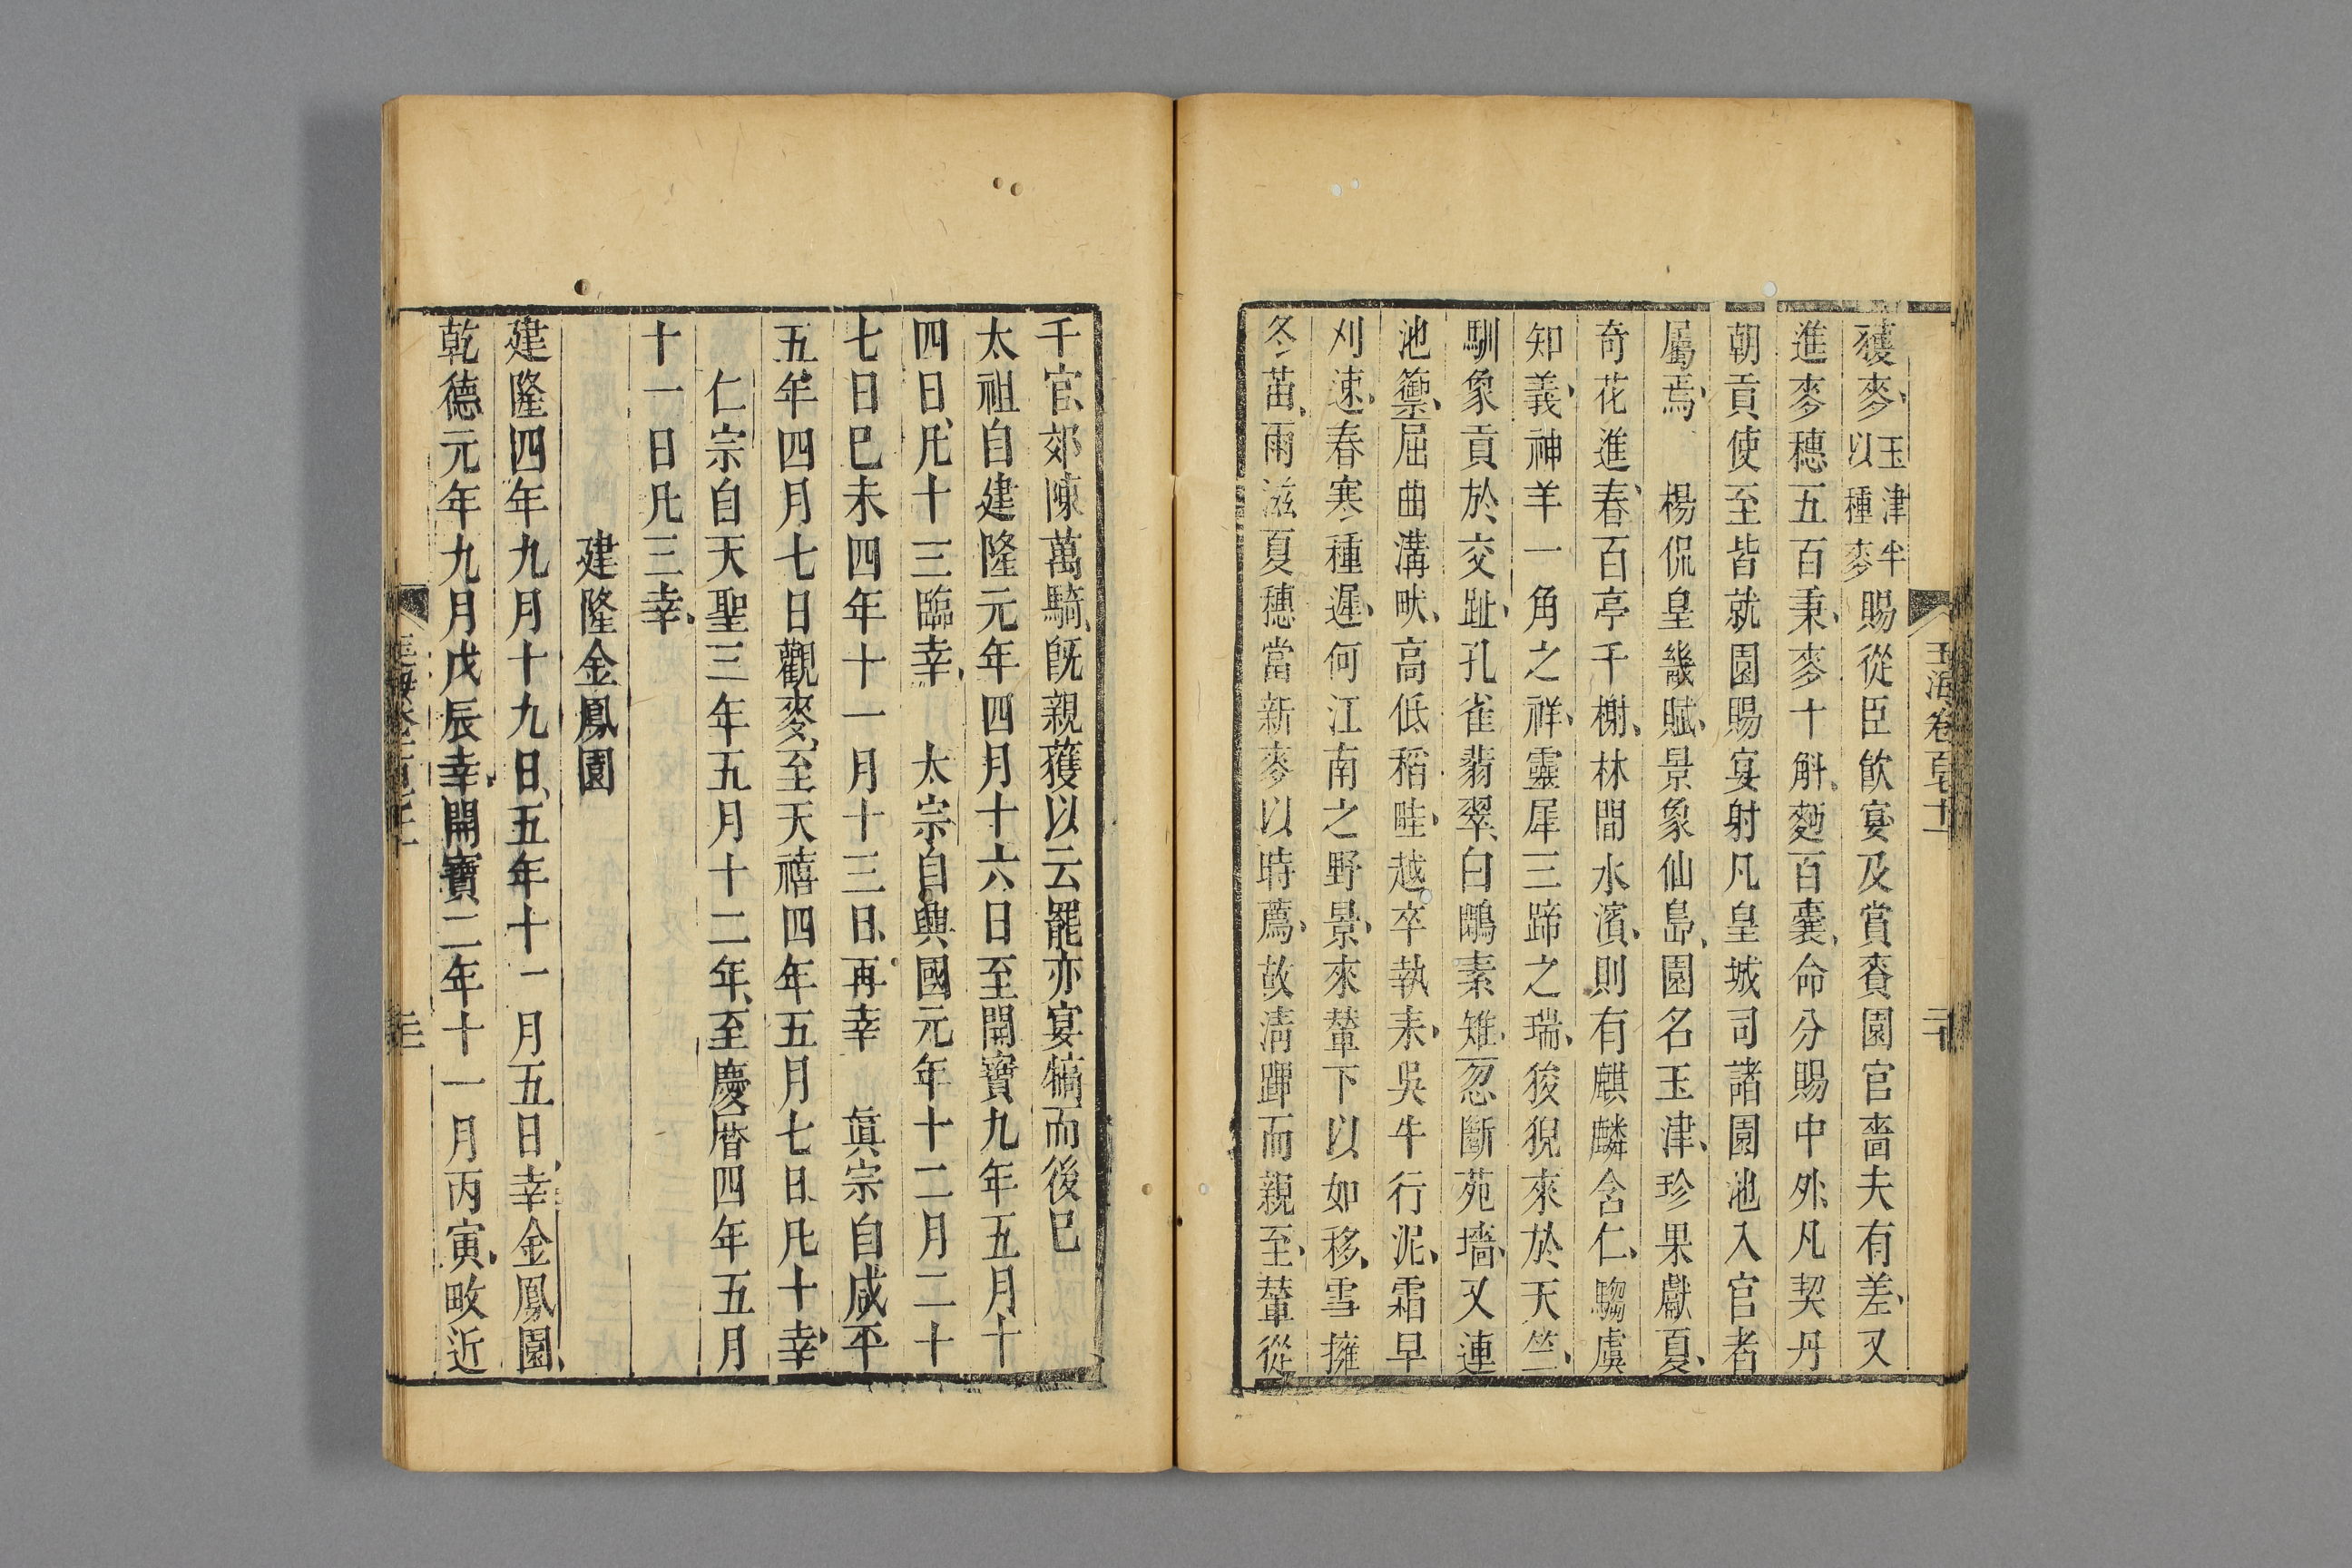 玉海卷百七十一 二十
穫麥玉津半以種麥賜從臣飲宴及賞賚園官嗇夫有差又
進麥穗五百秉麥十斛麪百囊命分賜中外凡契丹
朝貢使至皆就園賜宴射凡皇城司諸園池入官者
屬焉 楊侃皇畿賦景象仙島園名玉津珍果獻夏
奇花進春百亭千榭林間水濱則有麒麟含仁騶虞
知義神羊一角之祥靈犀三蹄之瑞狻猊來於天竺
馴象貢於交趾孔雀翡翠白鷴素雉忽斷苑墻又連
池籞屈曲溝畎高低稻畦越卒執耒吳牛行泥霜早
刈速春寒種遲何江南之野景來輦下以如移雪擁
冬苗雨滋夏穗當新麥以時薦故淸蹕而親至輦從
千官郊陳萬騎旣親穫以云罷亦宴犒而後已
太祖自建隆元年四月十六日至開寶九年五月十
四日凡十三臨幸 太宗自興國元年十二月二十
七日巳未四年十一月十三日再幸 眞宗自咸平
五年四月七日觀麥至天禧四年五月七日凡十幸
仁宗自天聖三年五月十二年至慶曆四年五月
十一日凡三幸
建隆金鳳園
建隆四年九月十九日五年十一月五日幸金鳳園
乾德元年九月戊辰幸開寶二年十一月丙寅畋近